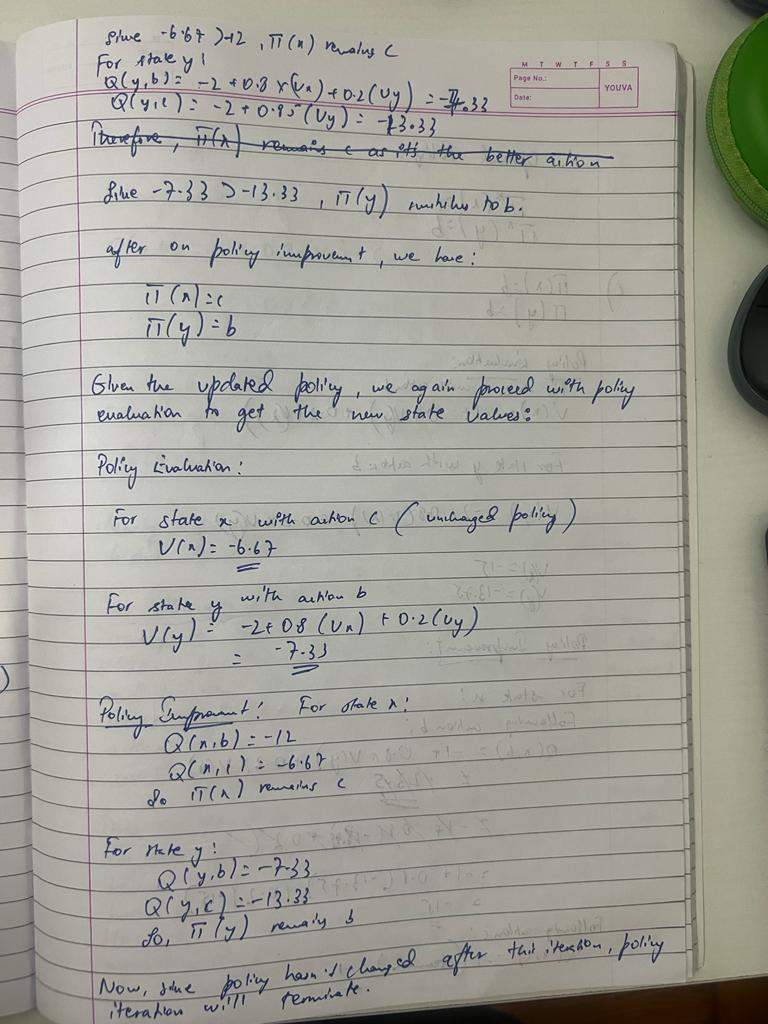 Since -6.67 > -12, π(x) remains c
For state y:
Q(y,b) = -2 + 0.8 x (Vx) + 0.2(Vy) = -7.33
Q(y,c) = -2 + 0.85(Vy) = -13.33
Therefore, π(x) remains c as it's the better action
Since -7.33 > -13.33, π(y) switches to b.
after on policy improvement, we have:
π(x)=c
π(y)=b
Given the updated policy, we again proceed with policy
evaluation to get the new state values:
Policy Evaluation:
For state x with action c (unchaged policy)
V(x) = -6.67
For state y with action b
V(y) = -2+0.8 (Vx) + 0.2(Vy)
= -7.33
Policy Improvment: For state x:
Q(x,b) = -12
Q(x,c) = -6.67
So π(x) remains c
For state y:
Q(y,b) = -7.33
Q(y,c) = -13.33
So, π(y) remains b
Now, since policy hasn't changed after this iteration, policy
iteration will terminate.
M T W T F S S
Page No.:
Date:
YOUVA